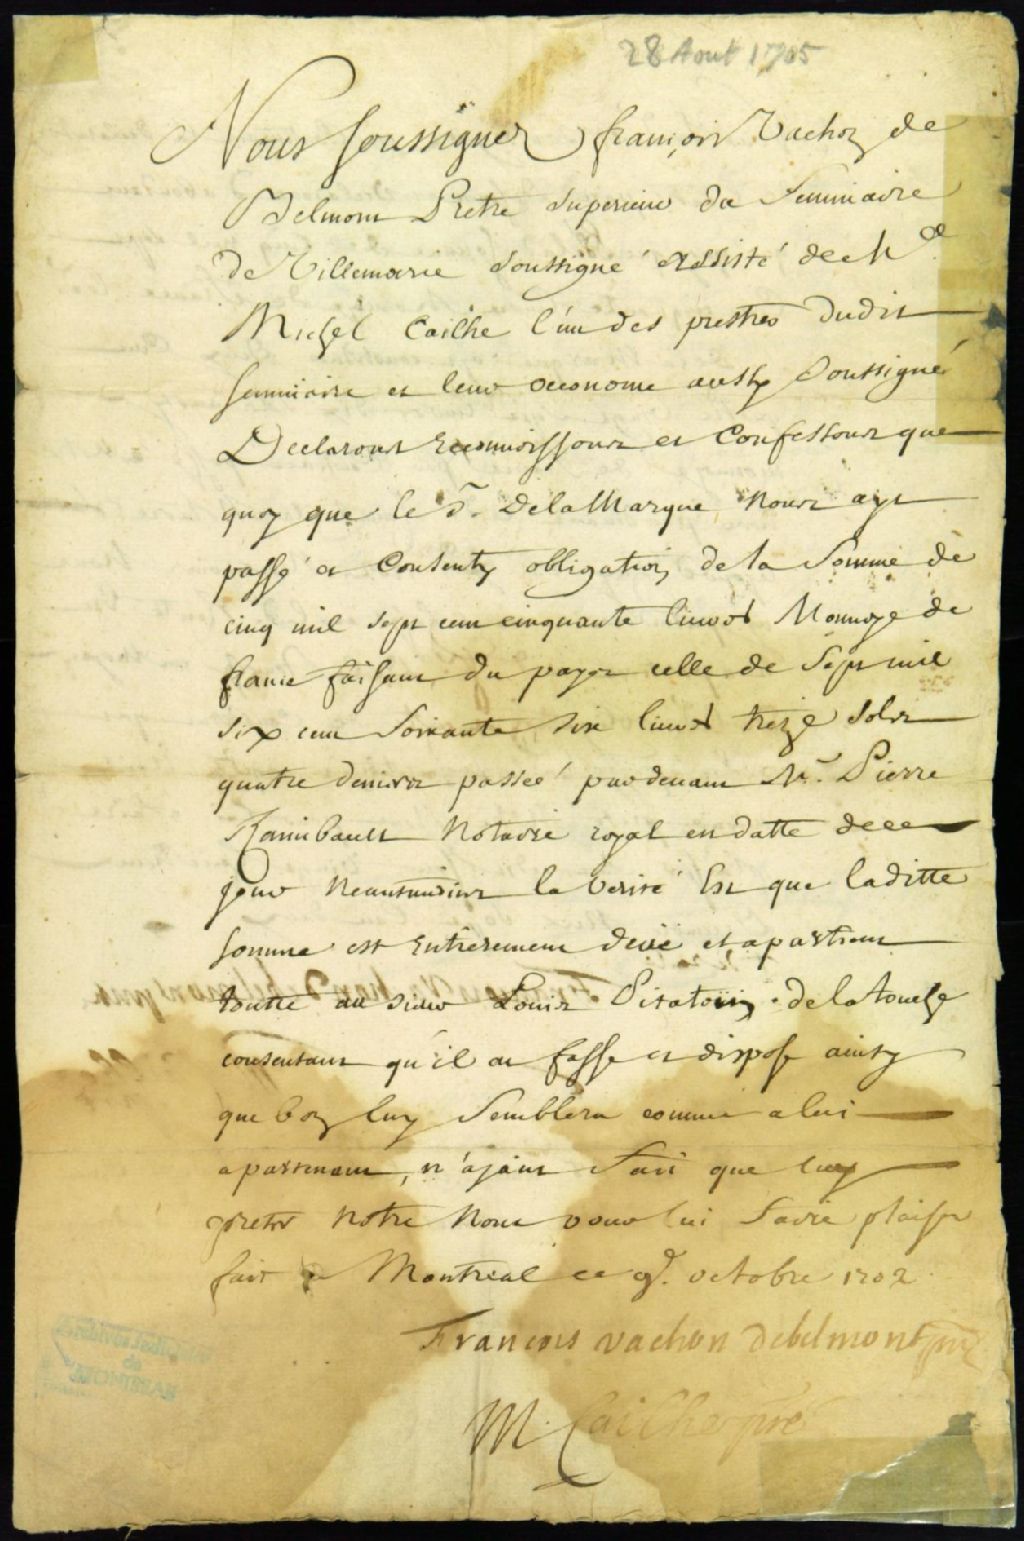 28 Aout 1705
Nous soussignez françois Vachon de
Belmont Pretre superieur du Seminaire
de Villemarie soussigné assisté de Mre
Michel Cailhe l'un des prestres dudit
seminaire et leur oeconome aussy soussigné
Declarons reconnoissons et Confessons que
quoy que le Sr. DelaMarque nous ayt
passé et Consenty obligation de la Somme de
cinq mil sept cent cinquante livres Monnoye de
france faisant du payis celle de Sept mil
six cent Soixante six livres treize solz
quatre deniers passée pardevant Me. Pierre
Raimbault Notaire royal en datte de ce
jour neantmoins la verité Est que laditte
somme est Entierement deüe et apartient
toutte au sieur Louis Sitatoüin delatouche
consentant qu'il en fasse et dispose ainsy
que bon luy Semblera comme a lui
apartenant, n'ajant fait que luy
preter notre nom pour lui faire plaisir
fait a Montreal ce 9e. octobre 1702
François vachon debelmont ptre
M Cailhe ptre
Archives Judiciaires
de
MONTREAL